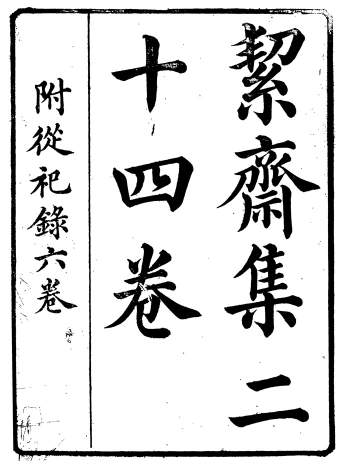 絜齋集二
十四卷
附從祀錄六卷